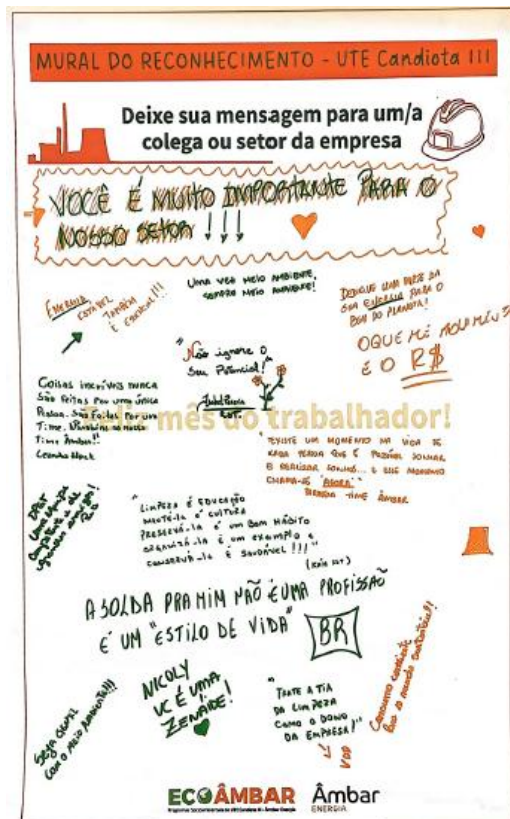 MURAL DO RECONHECIMENTO - UTE Candiota III
Deixe sua mensagem para um/a
colega ou setor da empresa
VOCÊ É MUITO IMPORTANTE PARA O
NOSSO SETOR !!!
ENERGIA ESTÁVEL
TAMBÉM
É ESSENCIAL!!!
UMA VEZ MEIO AMBIENTE,
SEMPRE MEIO AMBIENTE!
DEDIQUE UMA PARTE DA
SUA ENERGIA PARA O
BEM DO PLANETA!
OQUE ME
É O R$
"Não ignore o
Seu Potencial!"
Coisas incríveis nunca
São Feitas por uma única
Pessoa. São Feitas Por um
Time. Parabéns ao nosso
Time Âmbar!!
Leandro
Feliz mês do trabalhador!
"EXISTE UM MOMENTO NA VIDA DE
CADA PESSOA QUE É POSSÍVEL SONHAR
E REALIZAR SONHOS... E ESSE MOMENTO
CHAMA-SE "AGORA"
TIME ÂMBAR
Uma equipe
"LIMPEZA É EDUCAÇÃO
MANTÊ-LA É CULTURA
PRESERVÁ-LA É UM BOM HÁBITO
ORGANIZÁ-LA É UM EXEMPLO E
CONSERVÁ-LA É SAUDÁVEL!!!"
A SOLDA PRA MIM NÃO É UMA PROFISSÃO
É UM "ESTILO DE VIDA" BR
SEJA GENTIL
COM O MEIO AMBIENTE!!!
NICOLY
VC É UMA
ZENAIDE!
"TRATE A TIA
DA LIMPEZA
COMO O DONO
DA EMPRESA!"
Consumo consciente
Para o mundo sustentável!!
ECOÂMBAR
Âmbar
ENERGIA